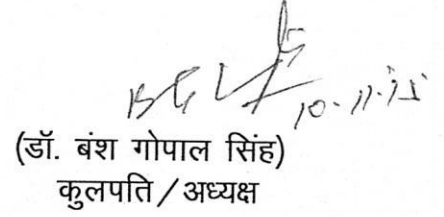 10-11-15
(डॉ. बंश गोपाल सिंह)
कुलपति / अध्यक्ष